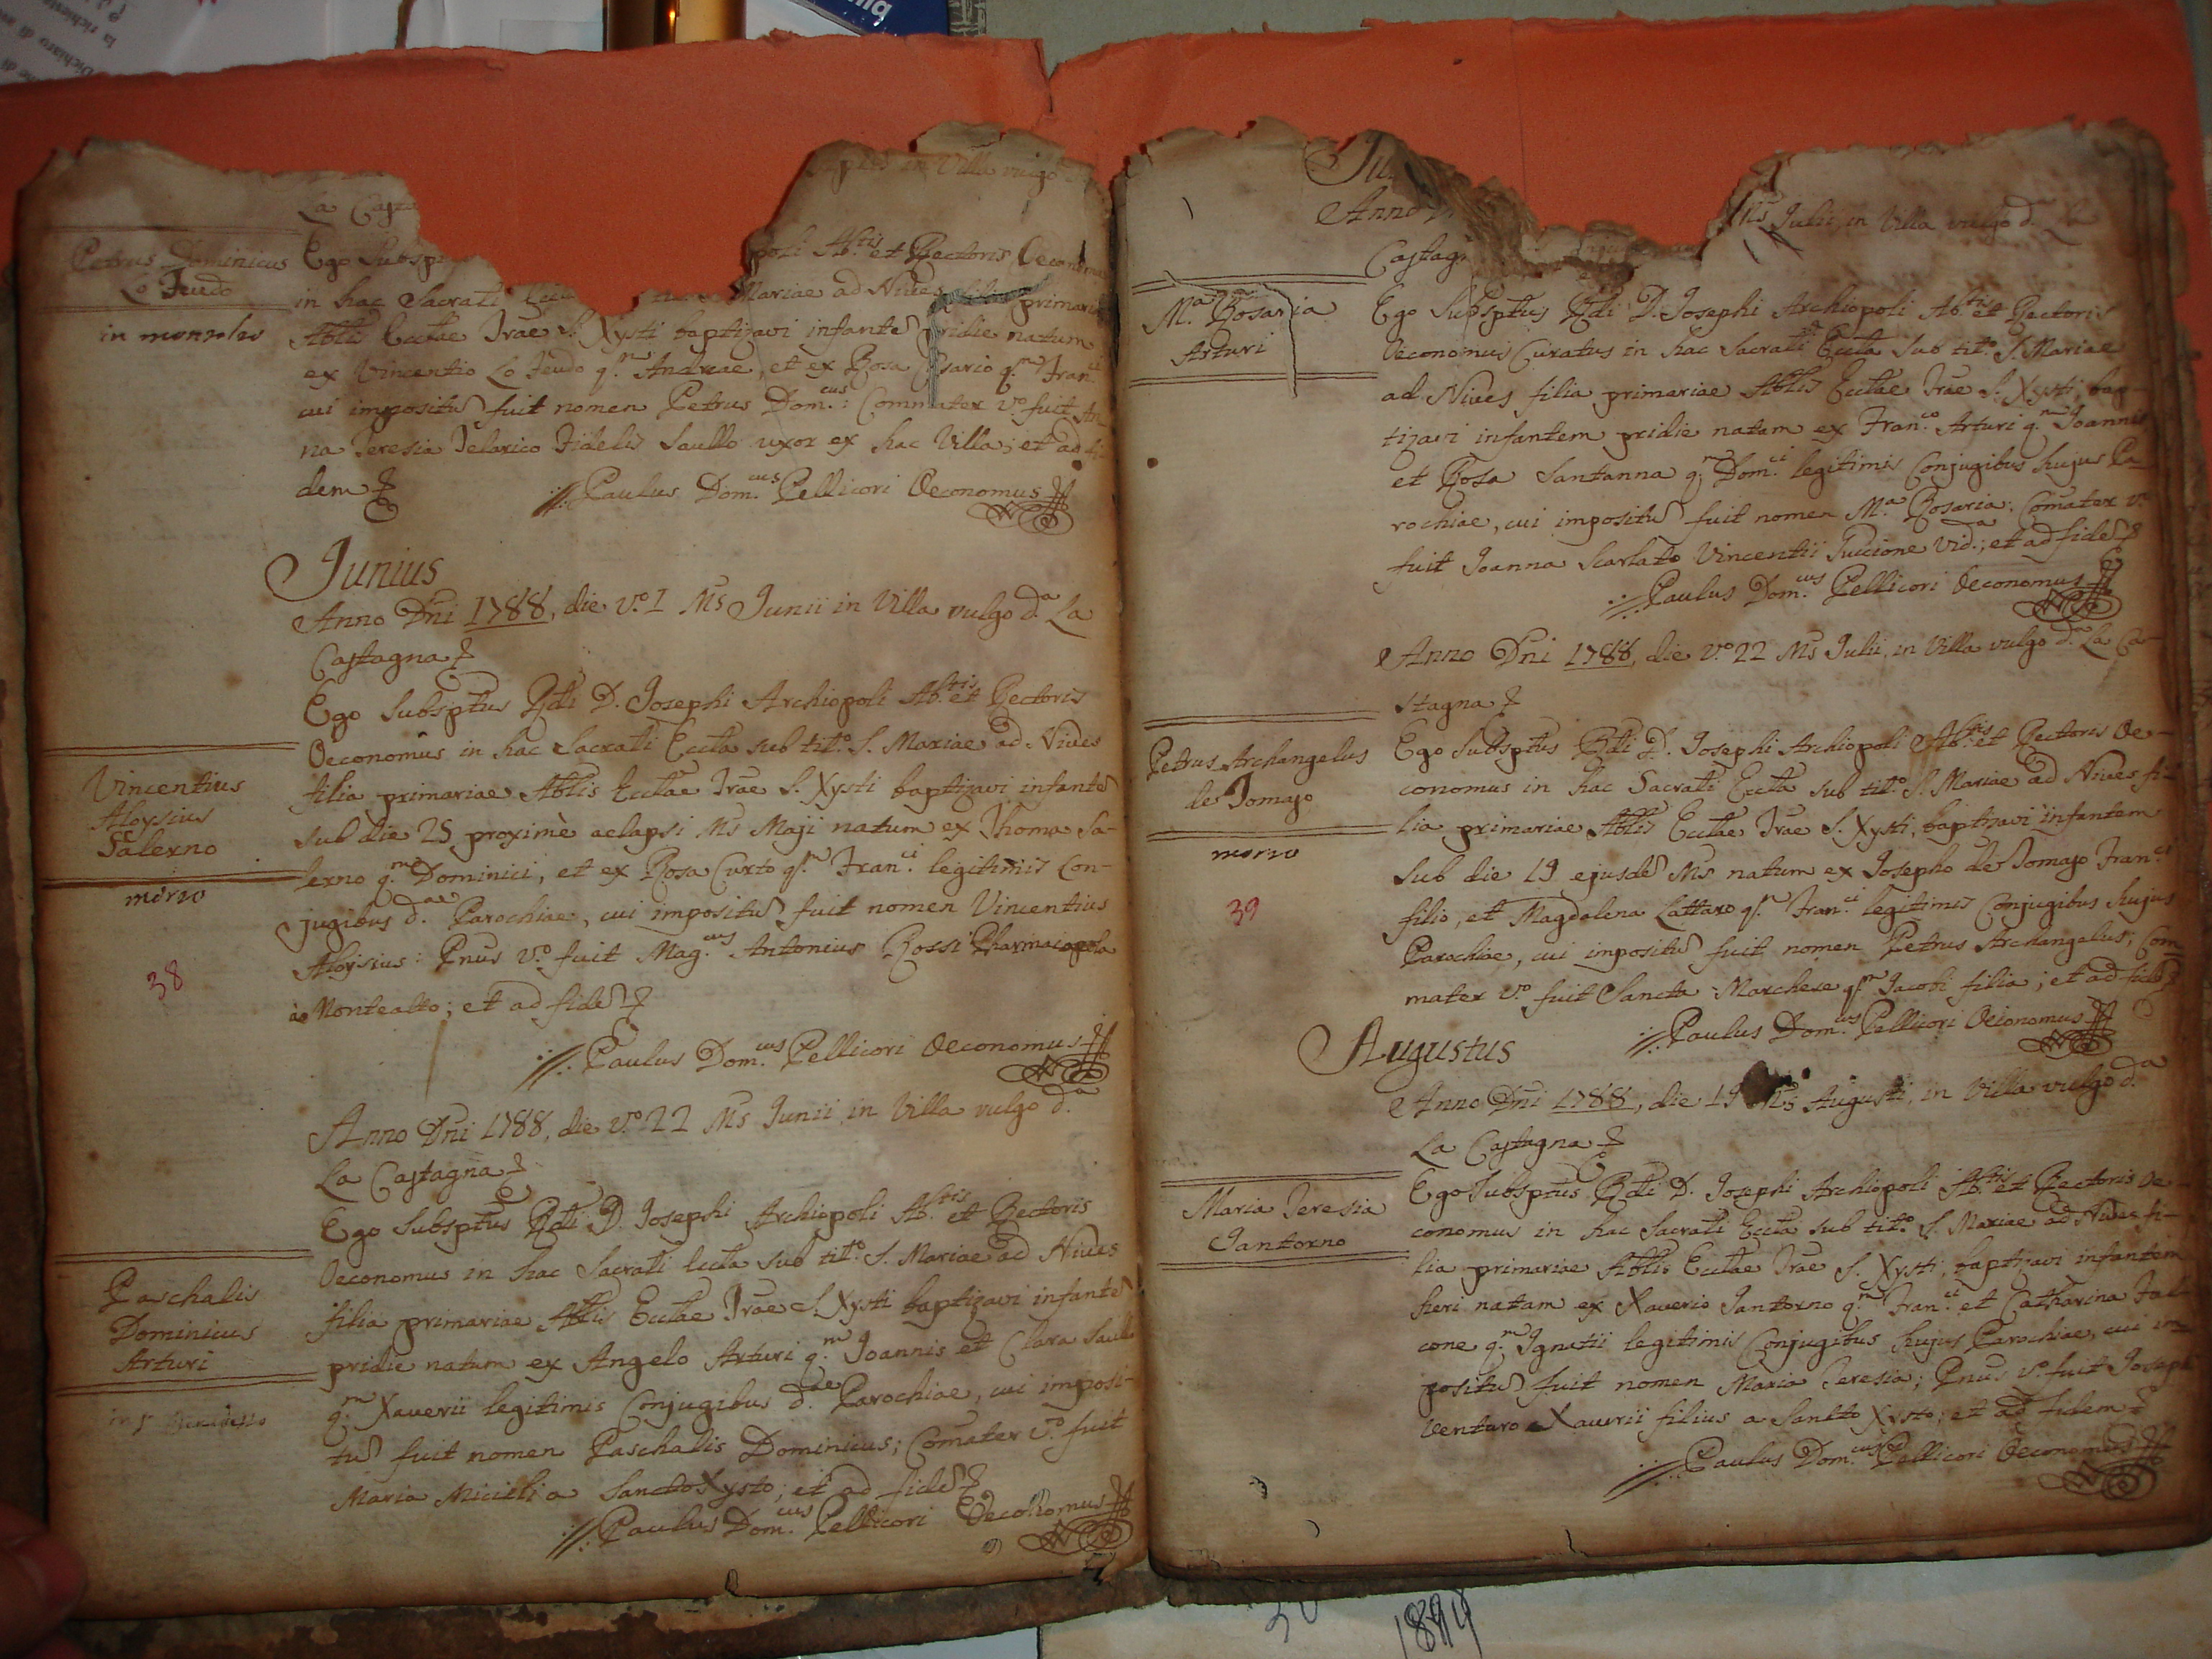 La Casta
in Villa vulgo
Petrus Dominicus
Lo Feudo
in monzoleo
Ego Subsp
poli Ab.tis et Rectoris Oeconomus
in hac Sacrati
Mariae ad Nives filia primariae
Ablis Ecctae Irae S. Xysti baptizavi infante pridie natum
ex Vincentio Lo Feudo q.m Andreae, et ex Rosa q.m Fran.ci
cui impositu fuit nomen Petrus Dom.cus: Commater v.o fuit An
na Teresia Telarico Fidelis Saullo uxor ex hac Villa; et ad fi
dem
Paulus Dom.cus Pellicori Oeconomus
Junius
Anno Dni 1788, die v.o 1 Ms Junii in Villa vulgo d.a La
Castagna
Vincentius
Aloysius
Salerno
morzo
38
Ego Subsptus Rdi D. Josephi Archiopoli Ab.tis et Rectoris
Oeconomus in hac Sacrati Eccta sub tit.o S. Mariae ad Nives
filia primariae Ablis Ecctae Irae S. Xysti baptizavi infante
sub die 25 proximè aelapsi Ms Maji natum ex Thoma Sa-
lerno q.m Dominici, et ex Rosa Curto q.m Fran.ci legitimis Con-
jugibus d.ae Parochiae, cui impositu fuit nomen Vincentius
Aloysius: Pnus v.o fuit Mag.cus Antonius Rossi Pharmacopola
à Montealto; et ad fide
Paulus Dom.cus Pellicori Oeconomus
Anno Dni 1788, die v.o 22 Ms Junii, in Villa vulgo d.a
La Castagna
Paschalis
Dominicus
Arturi
Ego Subsptus Rdi D. Josephi Archiopoli Ab.tis et Rectoris
Oeconomus in hac Sacrati Eccta sub tit.o S. Mariae ad Nives
filia primariae Ablis Ecctae Irae S. Xysti baptizavi infante
pridie natum ex Angelo Arturi q.m Joannis et Clara Saullo
q.m Xaverii legitimis Conjugibus d.ae Parochiae, cui imposi-
tu fuit nomen Paschalis Dominicus; Comater v.o fuit
Maria Micieli a Sancto Xysto; et ad fide
Paulus Dom.cus Pellicori Oeconomus
Anno
Ms Julii, in Villa vulgo d.a La
Castag
M.a Rosaria
Arturi
Ego Subsptus Rdi D. Josephi Archiopoli Ab.tis et Rectoris
Oeconomus Curatus in hac Sacrati Eccta sub tit.o S. Mariae
ad Nives filia primariae Ablis Ecctae Irae S. Xysti, bap-
tizavi infantem pridie natam ex Fran.co Arturi q.m Joannis
et Rosa Santanna q.m Dom.ci legitimis Conjugibus hujus Pa-
rochiae, cui impositu fuit nomen M.a Rosaria: Comater v.o
fuit Joanna Scarlato Vincentii Puccione Vid.a; et ad fide
Paulus Dom.cus Pellicori Oeconomus
Anno Dni 1788, die v.o 22 Ms Julii, in Villa vulgo d.a La Ca-
stagna
Petrus Archangelus
de Tomaso
morzo
39
Ego Subsptus Rdi D. Josephi Archiopoli Ab.tis et Rectoris Oe-
conomus in hac Sacrati Eccta sub tit.o S. Mariae ad Nives fi-
lia primariae Ablis Ecctae Irae S. Xysti, baptizavi infantem
sub die 19 ejusde Ms natum ex Josepho de Tomaso Fran.ci
filio, et Magdalena Lattaro q.m Fran.ci legitimis Conjugibus hujus
Parochiae, cui impositu fuit nomen Petrus Archangelus; Com
mater v.o fuit Sancta Marchese q.m Jacobi filia; et ad fide
Paulus Dom.cus Pellicori Oeconomus
Augustus
Anno Dni 1788, die 19 Ms Augusti, in Villa vulgo d.a
La Castagna
Maria Teresia
Jantorno
Ego Subsptus Rdi D. Josephi Archiopoli Ab.tis et Rectoris Oe-
conomus in hac Sacrati Eccta sub tit.o S. Mariae ad Nives fi-
lia primariae Ablis Ecctae Irae S. Xysti, baptizavi infantem
heri natam ex Xaverio Jantorno q.m Fran.ci et Catharina Fal-
cone q.m Ignatii legitimis Conjugibus hujus Parochiae, cui im-
positu fuit nomen Maria Teresia; Pnus v.o fuit Joseph
Venturo Xaverii filius a Sancto Xysto; et ad fidem
Paulus Dom.cus Pellicori Oeconomus